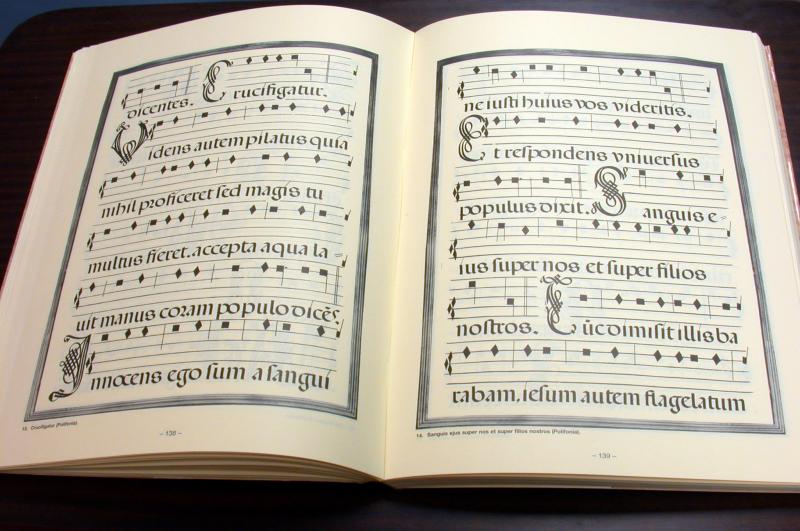 dicentes. Crucifigatur.
Videns autem pilatus quia
nihil proficeret sed magis tu
multus fieret. accepta aqua la-
uit manus coram populo dicēs
Innocens ego sum a sangui
13. Crucifigatur (Polifonía)
– 138 –
ne iusti huius vos videritis.
Et respondens vniuersus
populus dixit. Sanguis e-
ius super nos et super filios
nostros. Tūc dimisit illis ba
rabam, iesum autem flagelatum
14. Sanguis ejus super nos et super filios nostros (Polifonía).
– 139 –